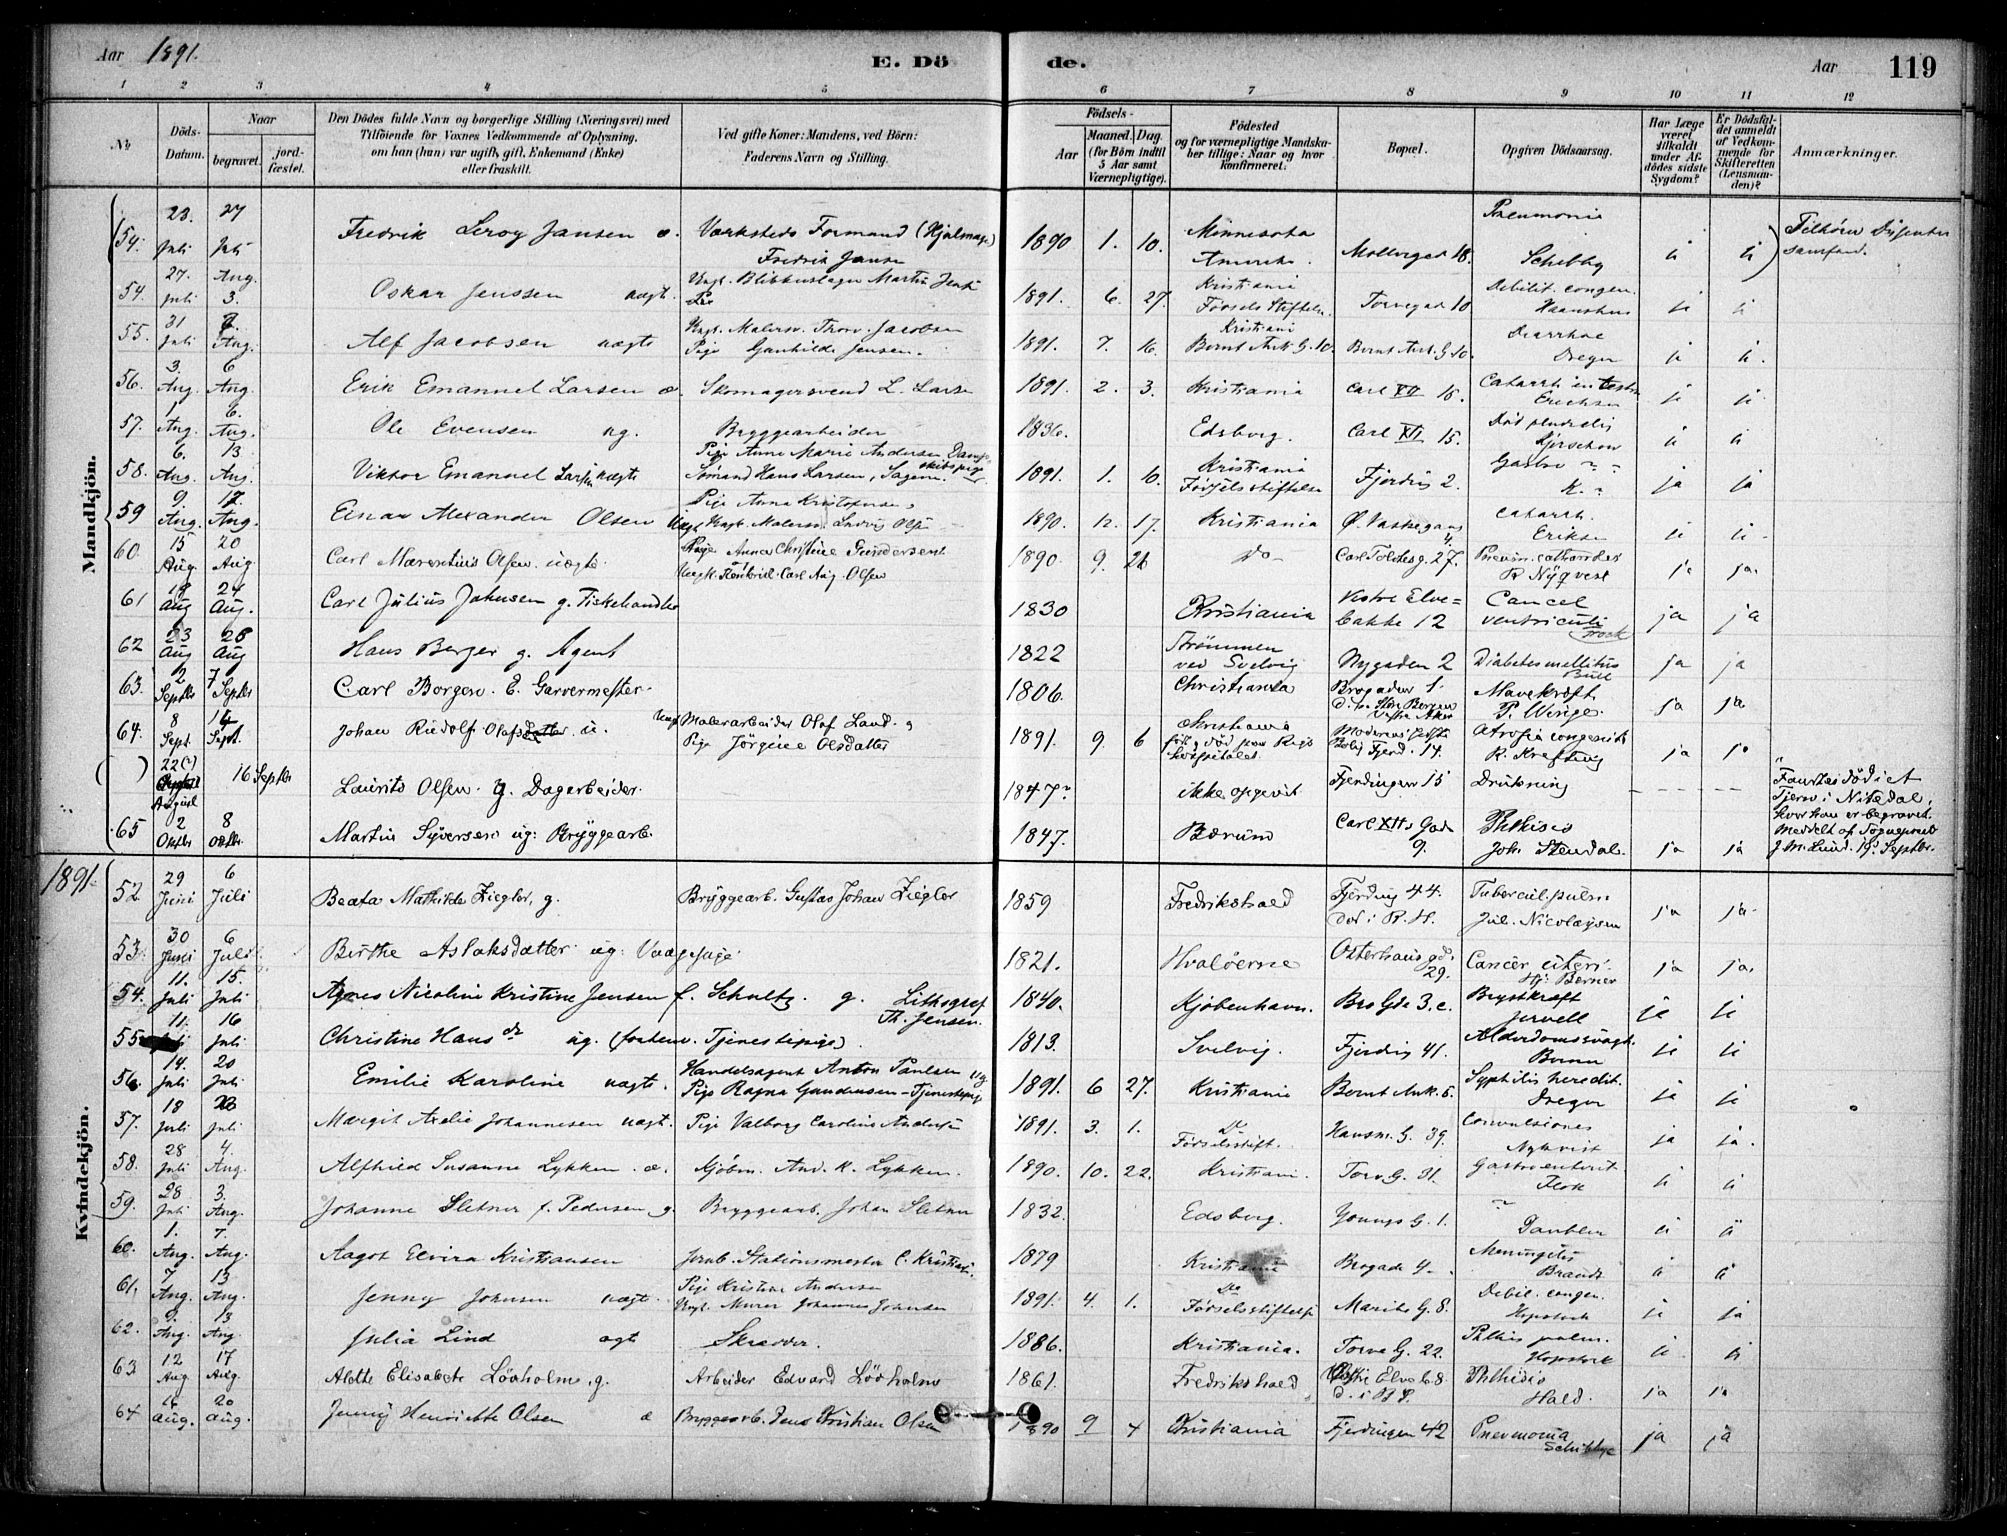 Aar 1891. E. Dö de. Aar 119
1 2 3 4 5 6 7 8 9 10 11 12
No
Döds-Datum.
Naar
begravet.
jord-fæstet.
Den Dödes fulde Navn og borgerlige Stilling (Næringsvei) med
Tilföiende for Voxnes Vedkommende af Oplysning,
om han (hun) var ugift, gift, Enkemand (Enke)
eller fraskilt.
Ved gifte Koner: Mandens, ved Börn:
Faderens Navn og Stilling.
Födsels-
Aar
Maaned. Dag.
(for Börn indtil
5 Aar samt
Værnepligtige).
Födested
og for værnepligtige Mandska-
ber tillige: Naar og hvor
konfirmeret.
Bopæl.
Opgiven Dödsaarsag.
Har Læge
været
tilkaldt
under Af-
dödes sidste
Sygdom?
Er Dödsfal-
det anmeldt
af Vedkom-
mende for
Skifteretten
(Lensman-
den)?
Anmærkninger.
Mandkjön.
54. 23. Juli 27 Juli Fredrik Leroy Jansen æ. Værksteds Formand (Hjulmager) Fredrik Jansen 1890 1. 10. Minnesota Amerika. Møllergad 18. Pneumonia Schibby ja ja Tilhører Dissenter samfund.
54. 27. Juli Aug. 3. Oskar Jenssen uægt. Ungk. Blikkenslager Martin 1891. 6. 27. Kristiania Fødsels Stiftelse. Torvegad 10 Debilit. congen. ja ja
55. 31 Juli Aug. Alf Jacobsen uægte Ungk. Malersv. Thorv. Jacobsen Pige Gunhilde Jensen. 1891. 7. 16. Kristiani Bernt Ank. G. 10. Bernt Ank. G 10. Diarrhoe Dreger ja ja.
56. 3. Aug. 6 Aug. Erik Emanuel Larsen æ. Skomagersvend L. Larsen 1891. 2. 3. Kristiania Carl XII 16. Catarrh. intestin Erichsen ja ja
57. 1 Aug. 6. Aug. Ole Evensen ug. Bryggearbeider 1836. Edsberg. Carl XII 15. Død pludselig ja ja
58. 6. Aug. 13 Aug. Viktor Emanuel Larsen uægte Pige Anne Marie Andersen Sømand Hans Larsen, 1891. 1. 10. Kristiania Fødselsstiftelse Fjerding 2. Gastro ja ja
59 9. Aug. 12. Aug. Einar Alexander Olsen Uægt Pige Anna Kristofersen Ungk. Malersv. Ludvig Olsen 1890. 12. 17. Kristiania Ø. Vaskegang 4. Catarrh. Eriksen ja ja
60. 15 Aug. 20 Aug. Carl Marentius Olsen. uægte. Pige Anna Christine Gundersen Ungk. Carl Aug. Olsen 1890. 9. 26 do Carl Toldbg. 27. Pneum. catharralis R Nyqvist ja ja.
61 18 Aug 24 Aug. Carl Julius Johnsen g. Fiskehandler 1830 Christiania Vestre Elve-bakke 12 Cancer ventriculi ja ja
62 23 Aug 28 Aug Hans Berger g. Agent 1822 Strømmen ved Svelvig Nygaden 2 Diabetes mellitus Bull ja ja
63. 2 Septbr 7 Septbr Carl Borgen. E. Garvermester. 1806. Christiania Brogaden 1. Mavekræft P. Winge. ja ja
64. 8 Sept. 14 Sept. Johan Rudolf Olafs u. Ungk Malerarbeider Olaf Lund. og Pige Jörgine Olsdatter 1891. 9. 6 Christiania Fjerd. 14. Atrofia congenita R. Krefting ja ja
( ) 22 (?) August 16 Septbr Laurits Olsen. g. Dagarbeider. 1847? ikke opgevit. Fjerdingen 15 Drukning – – – – Fantes död i et Tjern i Nitedal, hvor han er begravet. Meddelt af Sognepræst J. M. Lund. 19 Septbr.
65 2 Oktbr 8 Oktbr. Martin Syversen ug: Bryggearb. 1847. Bærum Carl XIIs Gad 9. Phthisis Joh. Stendal. ja ja
1891.
Kvindekjön.
52. 29 Juni 6 Juli Beata Mathilde Ziegler, g. Bryggearb. Gustav Johan Ziegler 1859 Fredrikshald Fjerding 44. Død i R. H. Tubercul. pulm Jul. Nicolaysen ja ja
53. 30 Juni 6 Juli Birthe Aslaksdatter ug: Vaagepige 1821. Hvaløerne Osterhausgd. 29. Cancer uteri. Hj: Berner ja ja.
54. 11. Juli 15. Juli Agnes Nicoline Kristine Jensen f. Schultz. g. Lithograf Th. Jensen. 1840. Kjøbenhavn. Bro Gde 3. c. Brystkræft Jervell ja ja
55 11. Juli 16 Juli Christine Hans dr ug. (forhenv. Tjenestepige). 1813. Svelvig. Fjerding 41. Alderdomssvagh. ja ja
56. 14. Juli 20 Juli Emilie Karoline uægt. Handelsagent Anton Paulsen og Pige Ragna Gundersen – Tjenestepige 1891 6 27. Kristiania Bernt Ank. 5. Syphilis heredit. Dreger ja ja
57. 18 Juli Juli Margit Axelie Johannesen uægt. Pige Valborg Caroline Andersen 1891. 3. 1. Do Fødselsstift. Hausm. G. 39. Convulsiones Nykvist ja ja.
58. 28 Juli 4. Aug. Alfhild Susanne Lykken. æ. Kjøbm. And. K. Lykken. 1890. 10. 22. Kristiani. Torv G. 31. Gastroenterit. ja ja
59. 28 Juli 3. Aug. Johanne Sletner f. Pedersen g. Bryggearb. Johan Sletner 1832. Edsberg. Youngs G. 1. ja ja
60. 1. Aug. 7. Aug. Aagot Elvira Kristiansen Jernb. Stationsmester C. Kristians. 1879 Kristiania Brogade 4. Meningitis Brandt ja ja
61. 7 Aug. 13 Aug. Jenny Johnsen uægt. Pige Kristine Andersen Ungk. Murer Johannes Johnsen 1891. 4. 1. Do Fødselsstiftelse Marits G. 8. Debil. congen. Hopstock ja ja
62. 9. Aug. 13 Aug. Julia Lind ægt Skrædder. 1886. Kristiania. Torve G. 22. Phthis pulm. Hopstock ja ja
63. 12 Aug 17 Aug. Alette Elisabete Lövholm, g. Arbeider Edvard Lövholm 1861. Fredrikshald Vestre Elve B. 8 Phthisis Hald. ja ja
64 Aug. 20 Aug. Jenny Henriette Olsen æ Bryggearb. Jens Kristian Olsen 1890 9 4 Christiania Fjerdingen 42 Pneumonia Schibbye ja ja